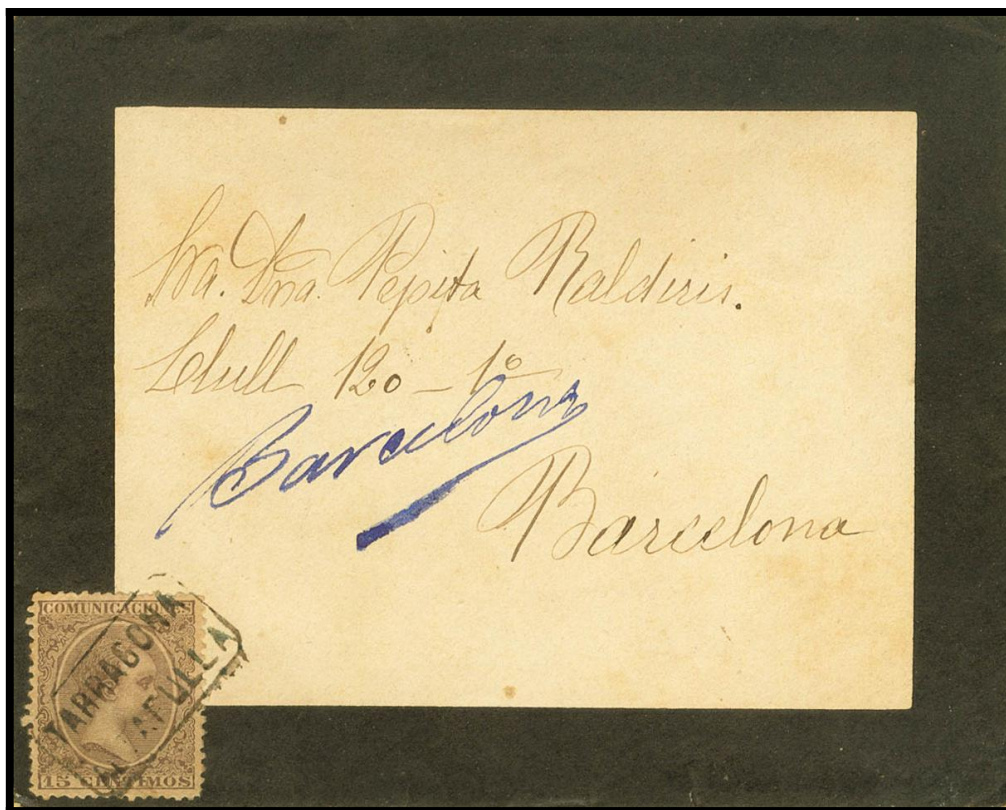 Sra. Dña. Pepita Baldiris.
Llull 120 - 1º
Barcelona
Barcelona
COMUNICACIONES
TARRAGONA
15 CENTIMOS